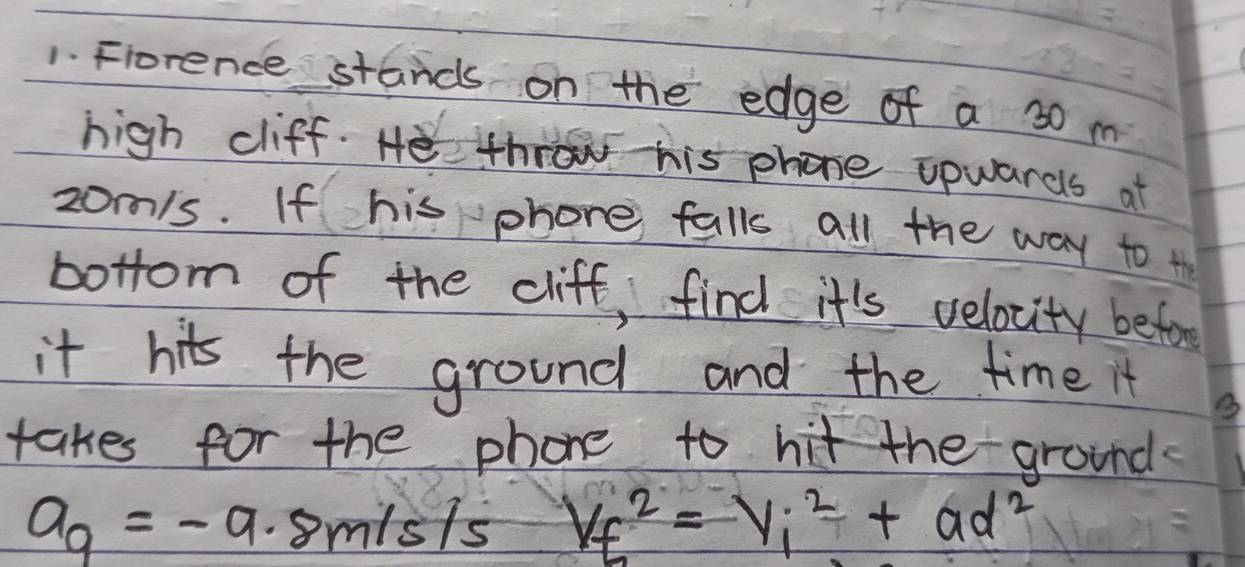 1. Florence stands on the edge of a 30 m
high cliff. He throw his phone upwards at
20m/s. If his phone falls all the way to the
bottom of the cliff, find it's velocity before
it hits the ground and the time it
takes for the phone to hit the ground.
ag = -9.8m/s/s Vf² = Vi² + ad²